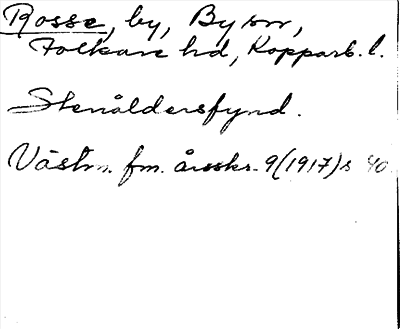 Rosse, by, By sn,
Folkare hd, Kopparb. l.
Stenåldersfynd.
Västm. fm. årsskr. 9(1917)s 40